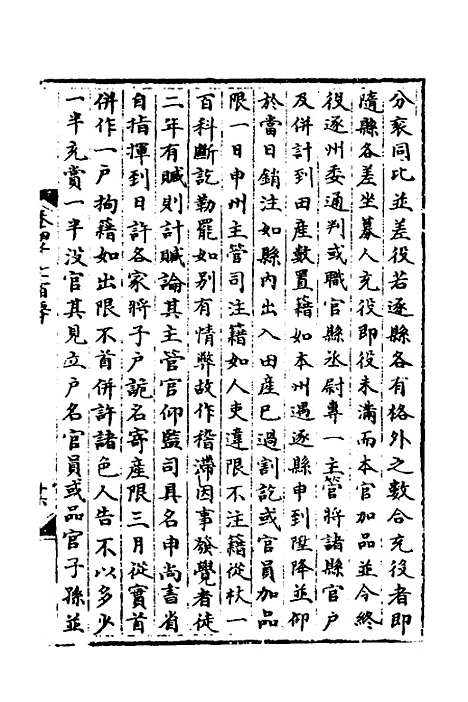 分衮同比並差役若逐縣各有格外之數合充役者即
隨縣各差坐募人充役即役未滿而本官加品並令終
役逐州委通判或職官縣丞尉專一主管將諸縣官戶
及併計到田產數置籍如本州遇逐縣申到陞降並仰
於當日銷注如縣內出入田產已過割訖或官員加品
限一日申州主管司注籍如人吏違限不注籍從杖一
百科斷訖勒罷如別有情弊故作稽滯因事發覺者徒
二年有贓則計贓論其主管官仰監司具名申尚書省
自指揮到日許各家將子戶詭名寄產限三月從實首
併作一戶拘籍如出限不首併許諸色人告不以多少
一半充賞一半沒官其見立戶名官員或品官子孫並